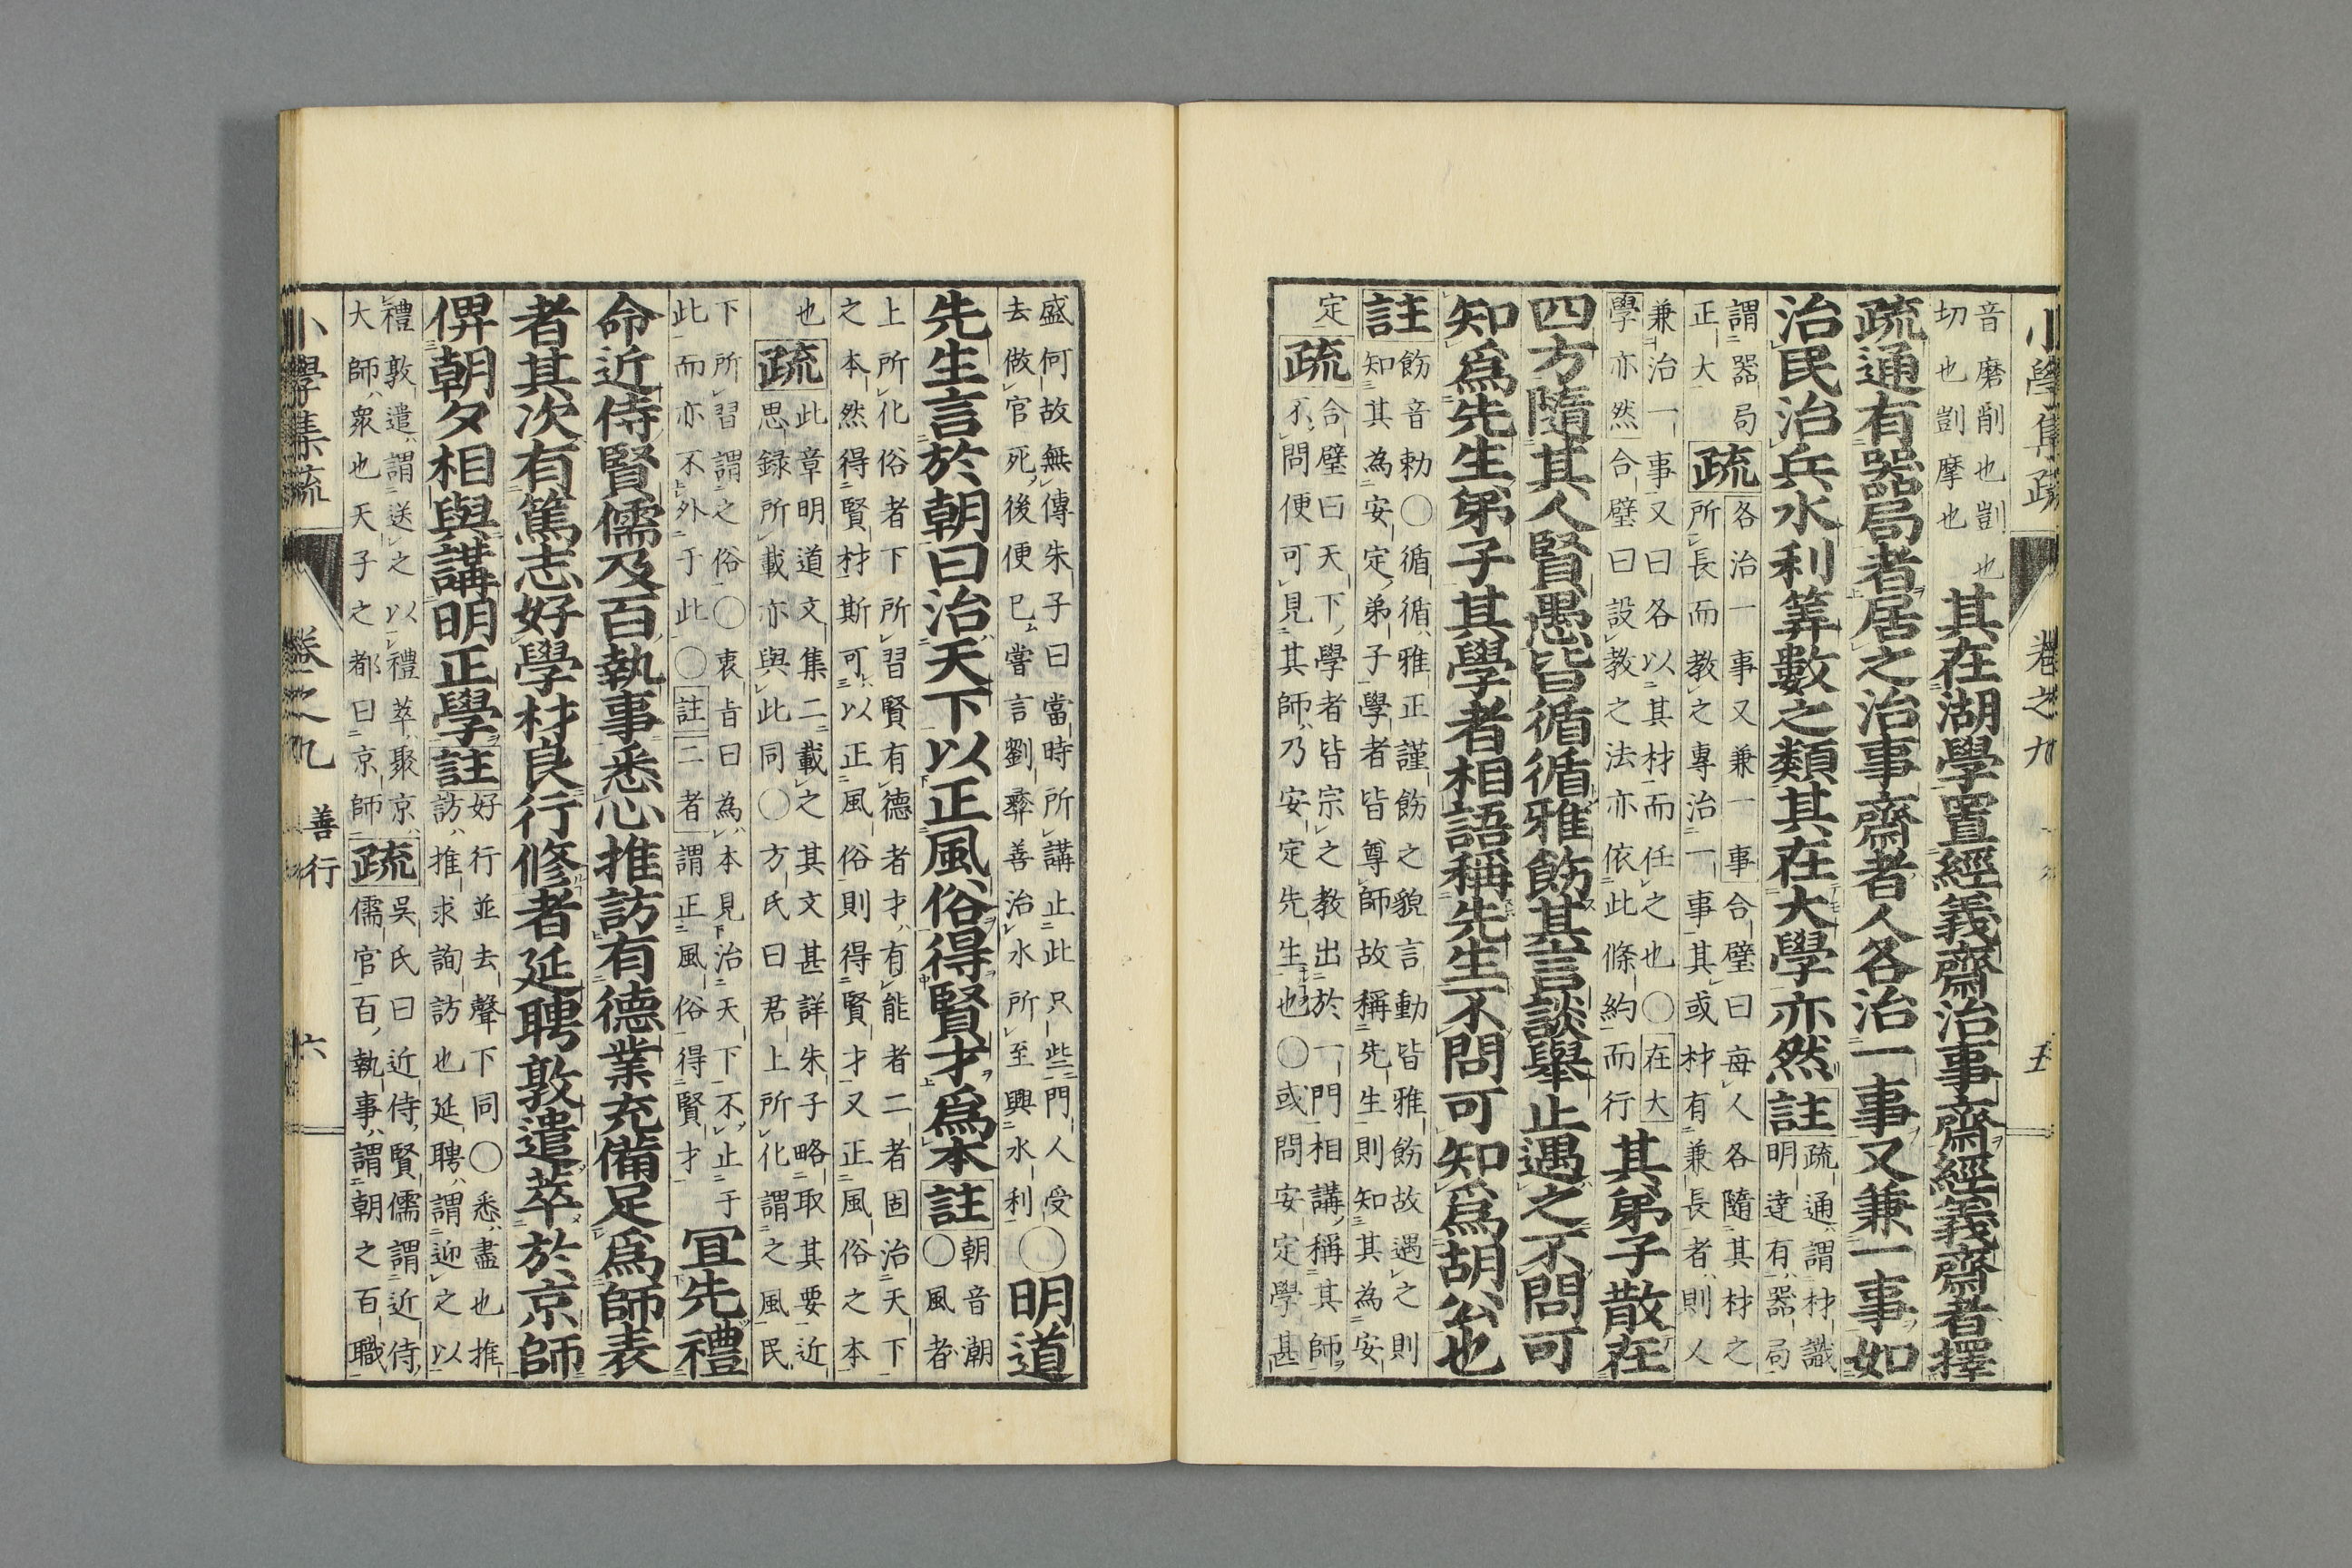 小學集疏
卷之九
五
音磨削也剴也
切也剴摩也
其在湖學置經義齋治事齋經義齋者擇
疏通有器局者居之治事齋者人各治一事又兼一事如
治民治兵水利筭數之類其在大學亦然
註
疏通謂材識
明達有器局
謂器局
正大
疏
各治一事又兼一事合璧曰每人各隨其材之
所長而教之專治一事其或材有兼長者則人
兼治一事又曰各以其材而任之也〇在大
學亦然合璧曰設教之法亦依此條約而行
其弟子散在
四方隨其人賢愚皆循循雅飭其言談舉止遇之不問可
知爲先生弟子其學者相語稱先生不問可知爲胡公也
註
飭音勅〇循循雅正謹飭之貌言動皆雅飭故遇之則
知其為安定弟子學者皆尊師故稱先生則知其為安
定
疏
合璧曰天下學者皆宗之教出於一門相講稱其師
不問便可見其師乃安定先生也〇或問安定學甚
盛何故無傳朱子曰當時所講止此只些門人受
去做官死後便已嘗言劉彝善治水所至興水利
〇明道
先生言於朝曰治天下以正風俗得賢才爲本
註
朝音潮
〇風者
上所化俗者下所習賢有德者才有能者二者固治天下
之本然得賢材斯可以正風俗則得賢才又正風俗之本
也
疏
此章明道文集二載之其文甚詳朱子略取其要近
思録所載亦與此同〇方氏曰君上所化謂之風民
下所習謂之俗〇衷旨曰為本見治天下不止于
此而亦不外于此〇註二者謂正風俗得賢才
冝先禮
命近侍賢儒及百執事悉心推訪有德業充備足爲師表
者其次有篤志好學材良行修者延聘敦遣萃於京師
俾朝夕相與講明正學
註
好行並去聲下同〇悉盡也推
訪推求詢訪也延聘謂迎之以
禮敦遣謂送之以禮萃聚京
大師衆也天子之都曰京師
疏
吳氏曰近侍賢儒謂近侍
儒官百執事謂朝之百職
小學集疏
卷之九
善行
六